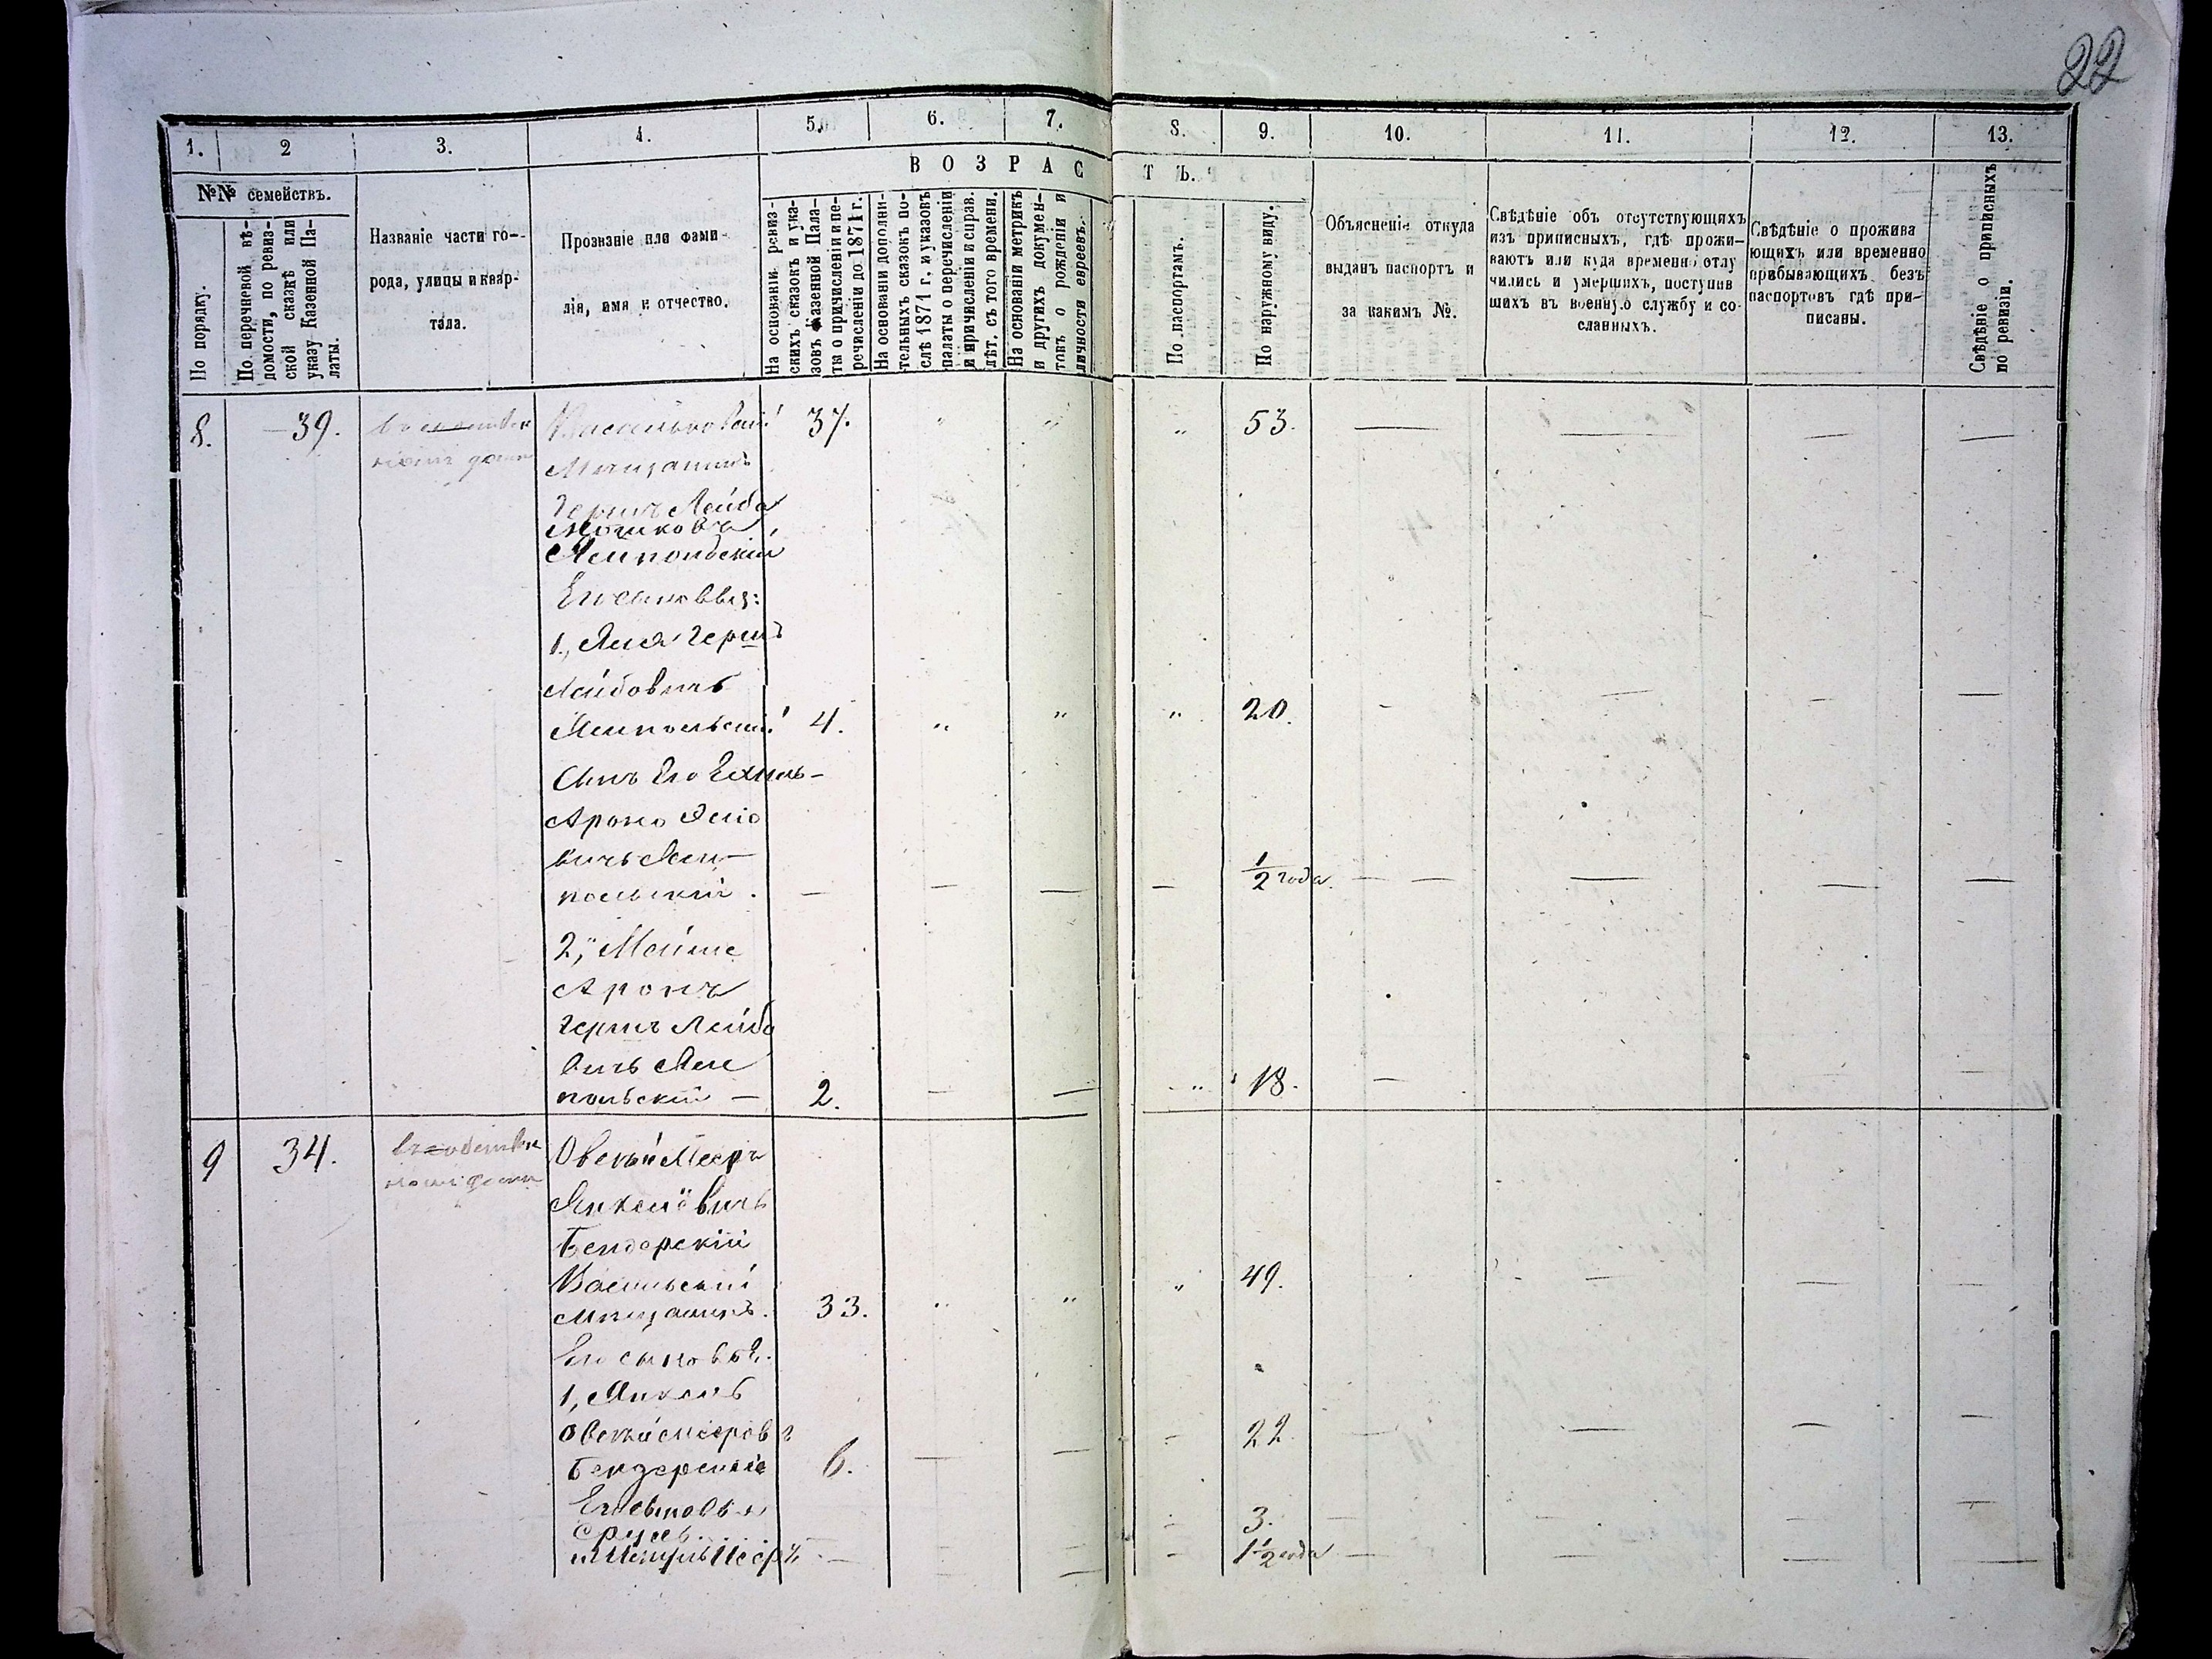 22
1. 2 3. 4. 5. 6. 7. 8. 9. 10. 11. 12. 13.
ВОЗРАСТЪ.
№№ семействъ.
По порядку.
По перечневой вѣ-
домости, по ревиз-
ской сказкѣ или
указу Казенной Па-
латы.
Названіе части го-
рода, улицы и квар-
тала.
Прозваніе или фами-
лія, имя и отчество.
На основаніи ревиз-
скихъ сказокъ и ука-
зовъ Казенной Пала-
ты о причисленіи и пе-
речисленіи до 1871 г.
На основаніи дополни-
тельныхъ сказокъ по-
слѣ 1871 г. и указовъ
палаты о перечисленіи
и причисленіи и справ.
лѣт. съ того времени.
На основаніи метрикъ
и другихъ докумен-
товъ о рожденіи и
личности евреевъ.
По паспортамъ.
По наружному виду.
Объясненіе откуда
выданъ паспортъ и
за какимъ №.
Свѣдѣніе объ отсутствующихъ
изъ приписныхъ, гдѣ прожи-
ваютъ или куда временно отлу
чились и умершихъ, поступив
шихъ въ военную службу и со-
сланныхъ.
Свѣдѣніе о прожива
ющихъ или временно
прибывающихъ безъ
паспортовъ гдѣ при-
писаны.
Свѣдѣніе о приписныхъ
по ревизіи.
8. 39. Васильковскій 37. " " " 53. — — — —
Мѣщанинъ
Гершъ Лейба
Мошковъ
Ямпольскій
Его сыновья:
1, Гершъ
Лейбовичъ
Ямпольскій 4. " " " 20. - — — —
Сынъ Его
Аронъ
вичъ Ям-
польскій. — — — — 1/2 года. — — — — —
2, Мейше
Аронъ
Гершъ Лейбо
вичъ Ям
польскій — 2. — — " 18. — — —
9 34. Овсей Мееръ
Янкелёвичъ
Бендерскій
Васильскій
мѣщанинъ. 33. " " " 49. — — —
Его сыновья.
1, Янкель
Овсей Мееровъ
Бендерскій 6. — — - 22. — — — —
Его сыновья
Сруль. - 3. — — —
Меер — - 1 1/2 года — — — —